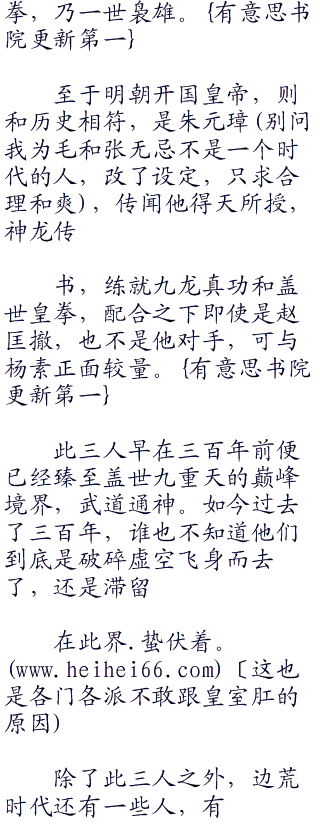 拳，乃一世袅雄。{有意思书
院更新第一}
至于明朝开国皇帝，则
和历史相符，是朱元璋(别问
我为毛和张无忌不是一个时
代的人，改了设定，只求合
理和爽)，传闻他得天所授，
神龙传
书，练就九龙真功和盖
世皇拳，配合之下即使是赵
匡撤，也不是他对手，可与
杨素正面较量。{有意思书院
更新第一}
此三人早在三百年前便
已经臻至盖世九重天的巅峰
境界，武道通神。如今过去
了三百年，谁也不知道他们
到底是破碎虚空飞身而去
了，还是滞留
在此界.蛰伏着。
(www.heihei66.com)〔这也
是各门各派不敢跟皇室肛的
原因)
除了此三人之外，边荒
时代还有一些人，有